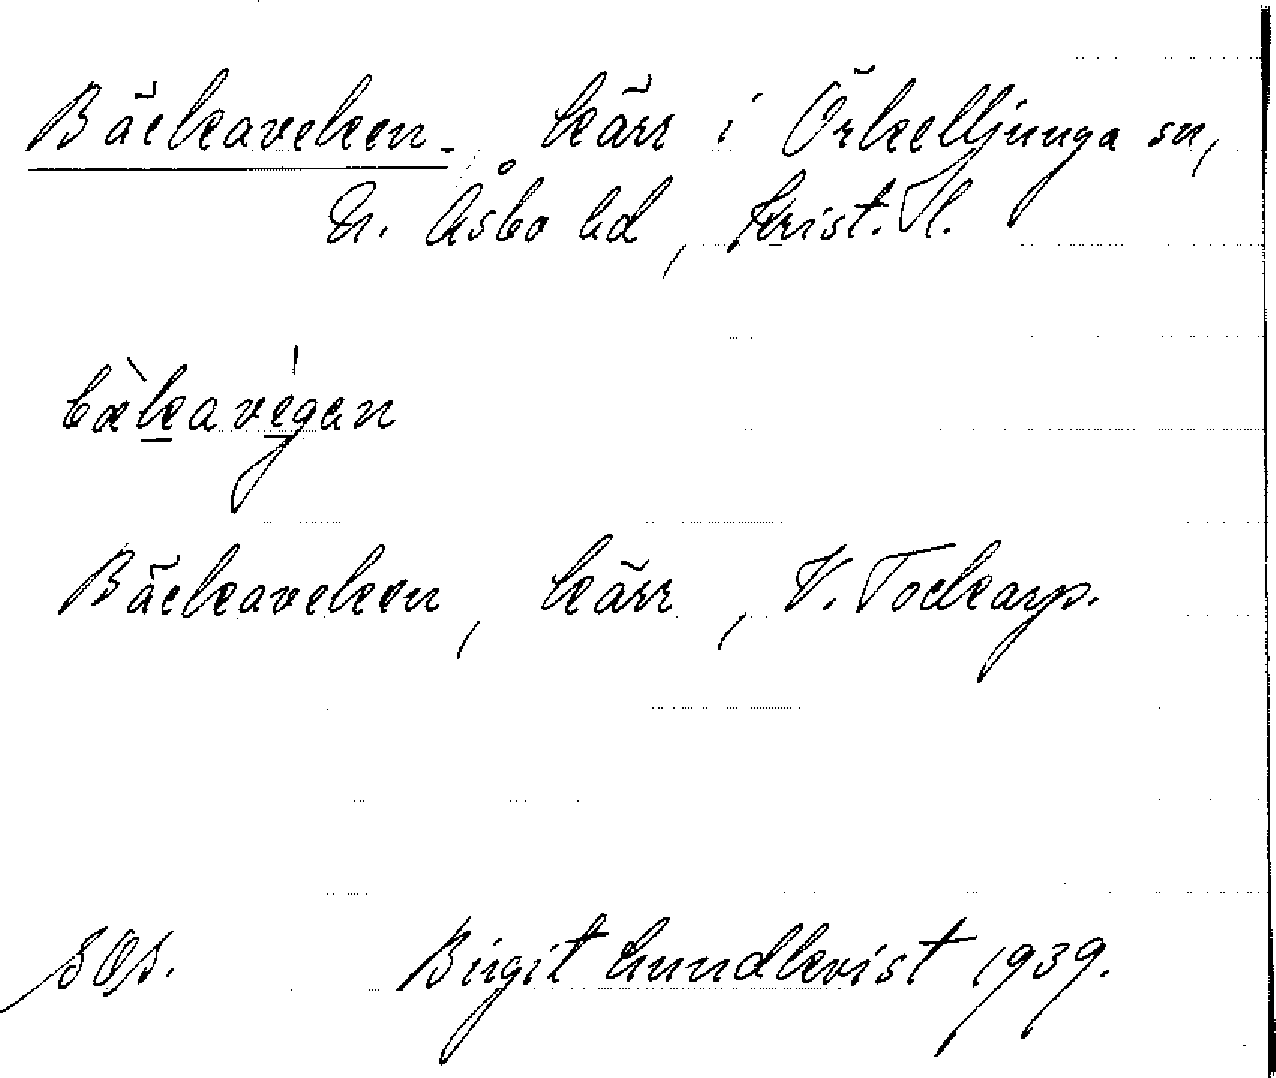 Bäckaveken, kärr i Örkelljunga sn,
N. Åsbo hd, Krist. l.
bækavegan
Bäckaveken, kärr, V. Tockarp.
SOS. Birgit Lundkvist 1939.